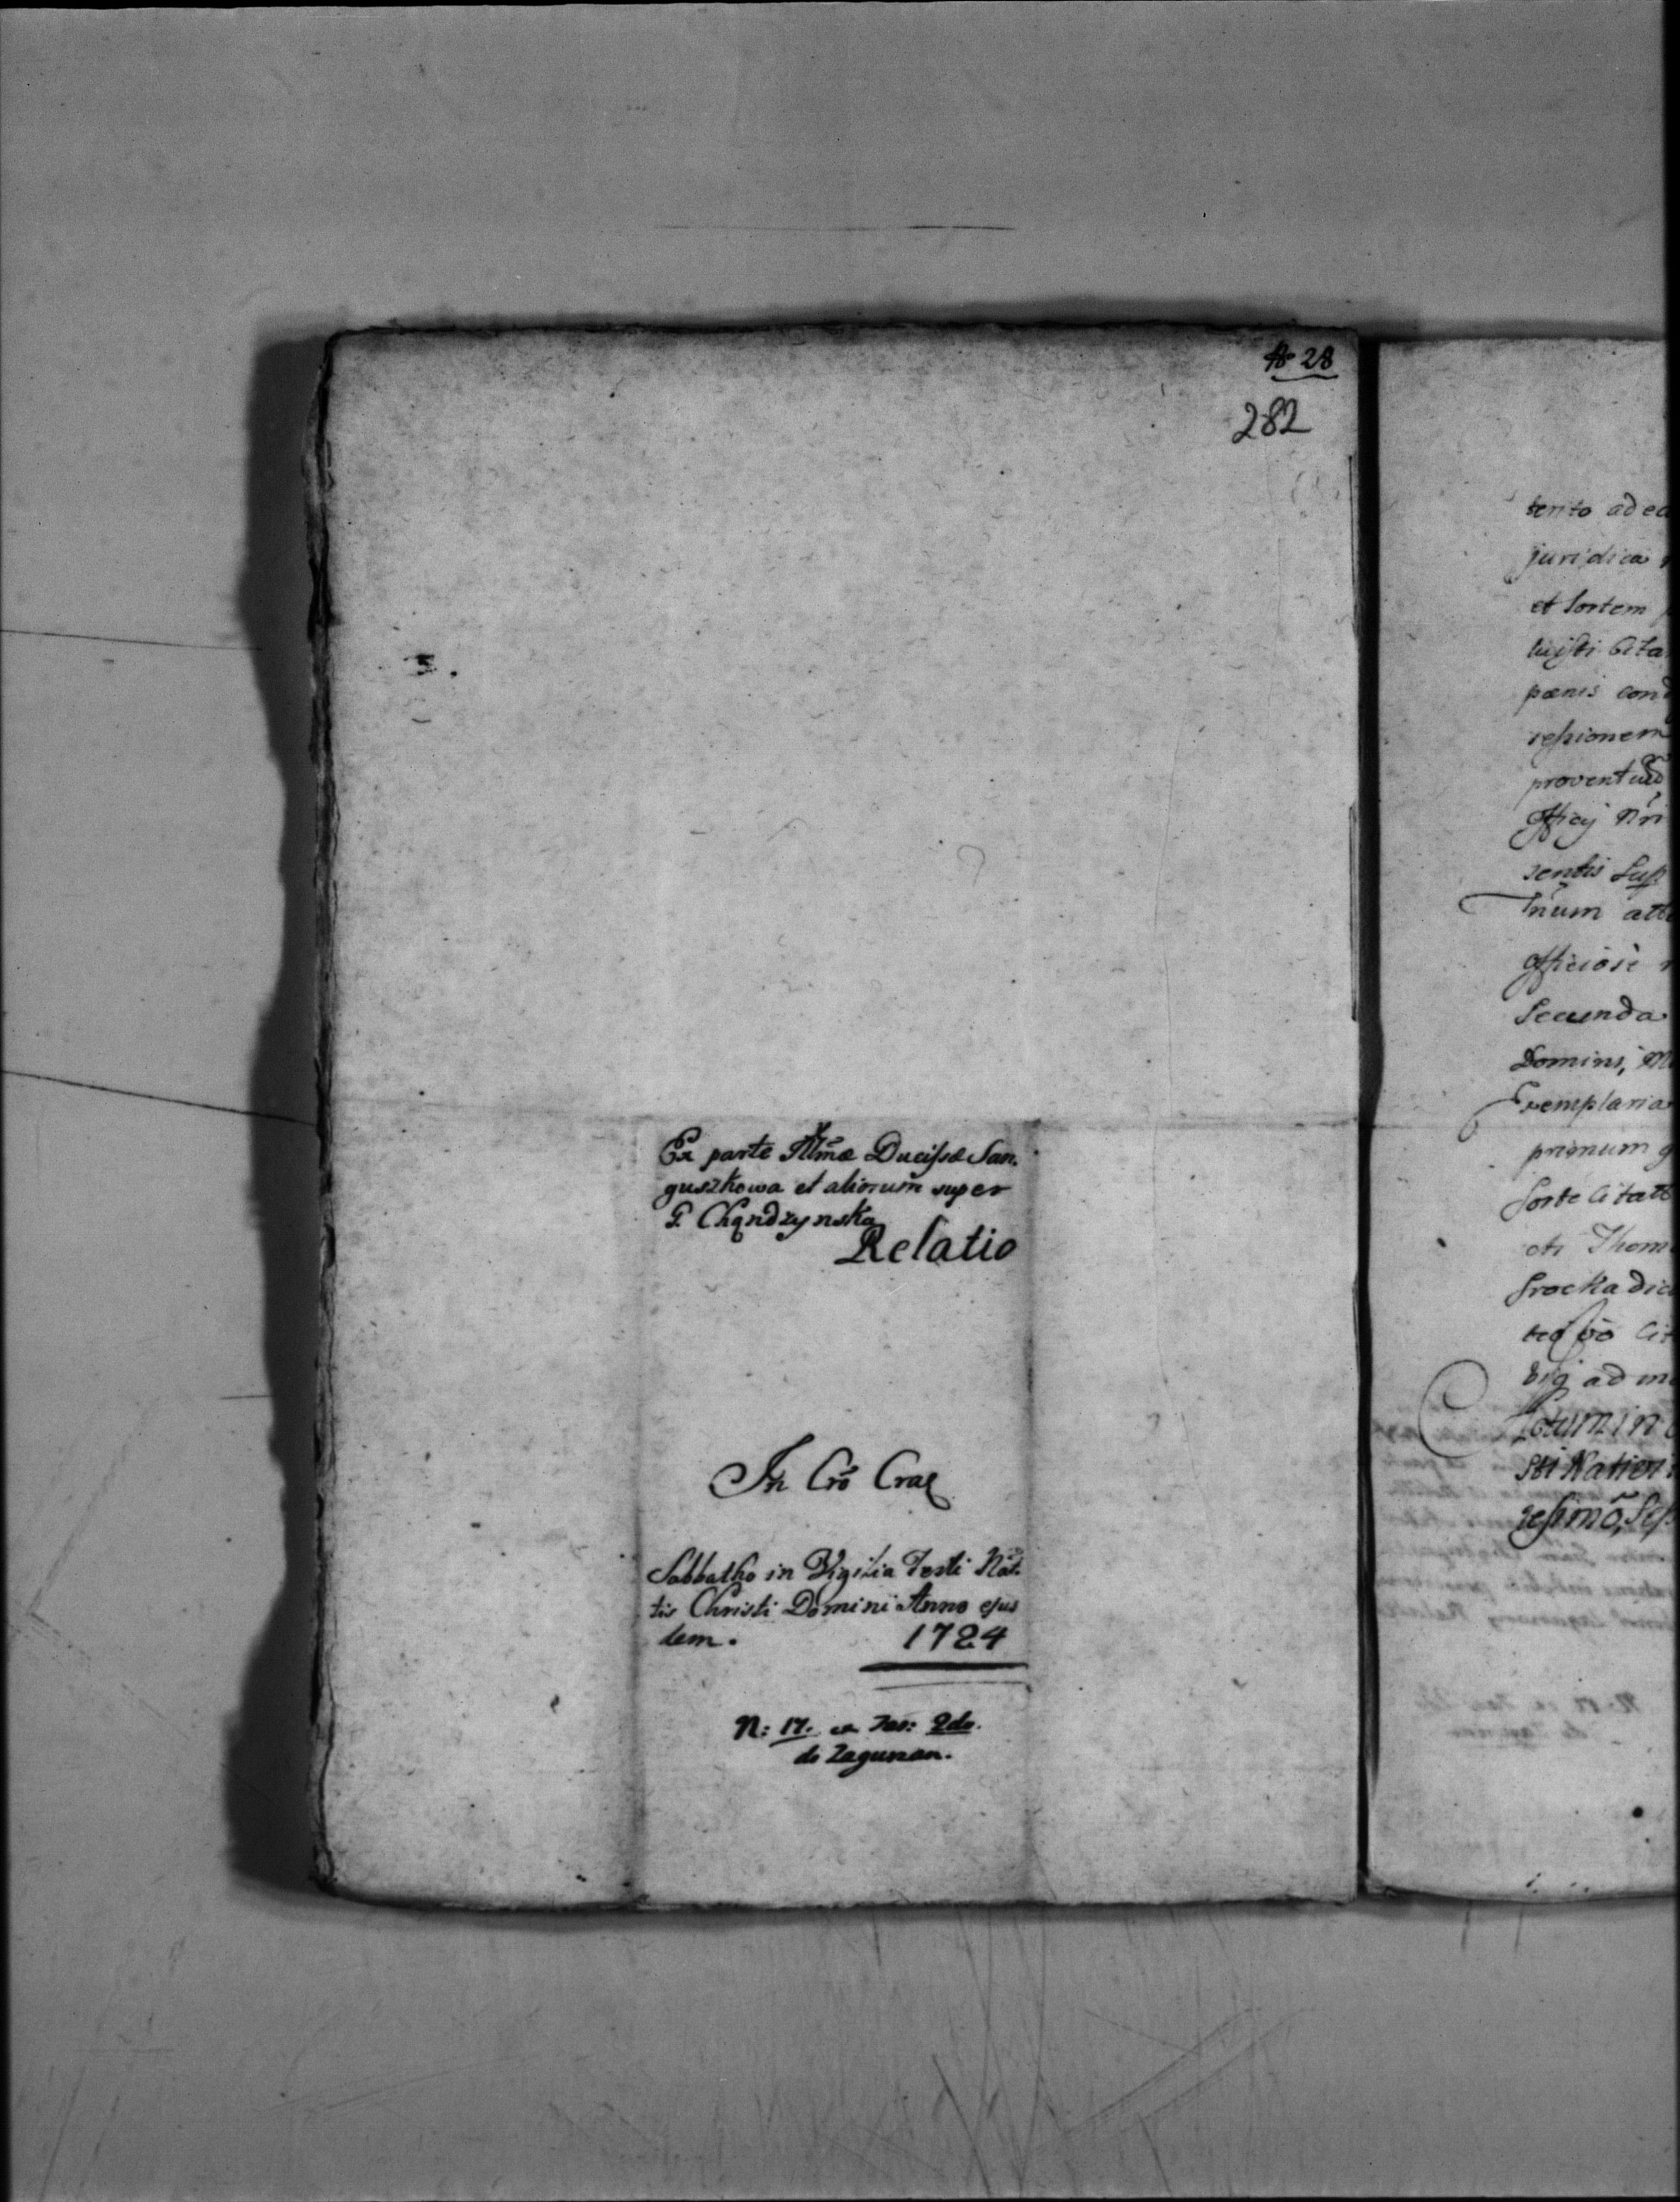 28
282
Ex parte Illmæ Ducissæ San.
guszkowa et aliorum super
G. Chądzynska
Relatio
In Crõ Crac
Sabbatho in Vigilia Festi Nat.
tis Christi Domini Anno ejus
dem. 1724
N: 17. ex Fas: 2do.
de Zagurzan.
tento ad ea
juridica
et Sortem
luisti Cita
pœnis cond
ressionem
proventuũ
Officij Nri
sentis Susp
Tñum atte
officiosè
Secunda
Domini, M
Exemplaria
primum
Sorte Citate
Thom
Srocka dic
ad m
Actum in
Sti Natier
gesimõ, Sep